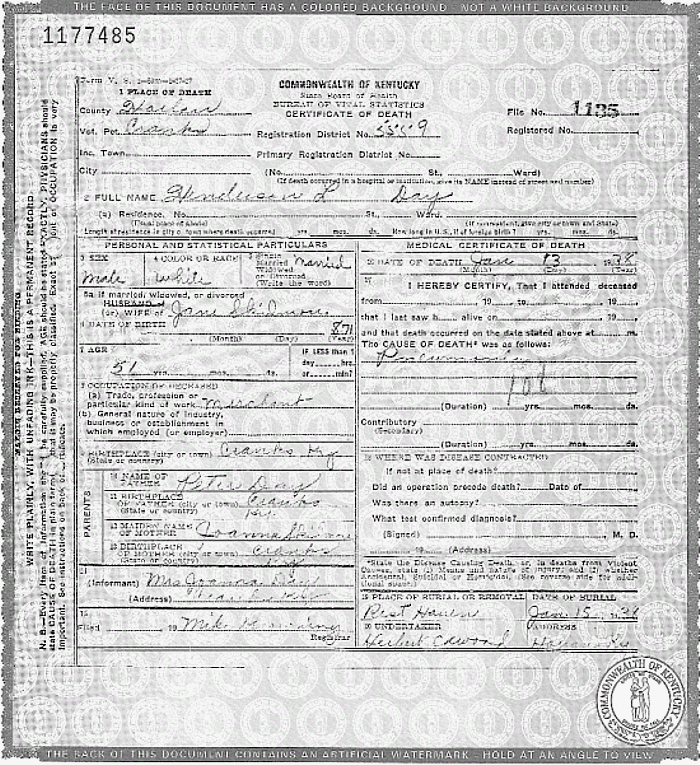 THE FACE OF THIS DOCUMENT HAS A COLORED BACKGROUND - NOT A WHITE BACKGROUND
1177485
Form V. S.
1 PLACE OF DEATH
County Harlan
Vot. Pct. Cranks
Inc. Town
City
COMMONWEALTH OF KENTUCKY
State Board of Health
BUREAU OF VITAL STATISTICS
CERTIFICATE OF DEATH
Registration District No. 5559
Primary Registration District No.
(No. St., Ward)
(If death occurred in a hospital or institution, give its NAME instead of street and number)
File No. 1135
Registered No.
2 FULL NAME Henderson L Day
(a) Residence. No. St., Ward.
(Usual place of abode) (If nonresident, give city or town and State)
Length of residence in city or town where death occurred yrs. mos. ds. How long in U.S., if of foreign birth? yrs. mos. ds.
PERSONAL AND STATISTICAL PARTICULARS
3 SEX
Male
4 COLOR OR RACE
White
5 Single
Married
Widowed
or Divorced
(Write the word)
Married
5a If married, widowed, or divorced
HUSBAND of
(or) WIFE of Jane Skidmore
6 DATE OF BIRTH
(Month) (Day) (Year)
7 AGE
51 yrs. mos. ds.
IF LESS than 1
day hrs.
or min?
8 OCCUPATION OF DECEASED
(a) Trade, profession or
particular kind of work Merchant
(b) General nature of industry,
business or establishment in
which employed (or employer)
9 BIRTHPLACE (city or town) Cranks Ky
(State or country)
PARENTS
10 NAME OF
FATHER Peter Day
11 BIRTHPLACE
OF FATHER (city or town) Cranks
(State or country) Ky.
12 MAIDEN NAME
OF MOTHER Joanna
13 BIRTHPLACE
OF MOTHER (city or town) Cranks
(State or country) Ky
14
(Informant) Mrs Joanna Day
(Address)
15
Filed 19 Mike
Registrar
MEDICAL CERTIFICATE OF DEATH
16 DATE OF DEATH Jan 13 1938
(Month) (Day) (Year)
17
I HEREBY CERTIFY, That I attended deceased
from 19 to 19
that I last saw h alive on 19
and that death occurred on the date stated above at m.
The CAUSE OF DEATH* was as follows:
Pneumonia
(Duration) yrs. mos. ds.
Contributory
(Secondary)
(Duration) yrs. mos. ds.
18 WHERE WAS DISEASE CONTRACTED
If not at place of death?
Did an operation precede death? Date of
Was there an autopsy?
What test confirmed diagnosis?
(Signed) M. D.
19 (Address)
*State the Disease Causing Death, or, in deaths from Violent
Causes, state (1) Means and Nature of Injury; and (2) whether
Accidental, Suicidal or Homicidal. (See reverse side for addi-
tional space)
19 PLACE OF BURIAL OR REMOVAL
Rest Haven
DATE OF BURIAL
Jan 15 1938
20 UNDERTAKER
Herbert
ADDRESS
MARGIN RESERVED FOR BINDING
WRITE PLAINLY, WITH UNFADING INK—THIS IS A PERMANENT RECORD
N. B.—Every item of information should be carefully supplied. AGE should be stated EXACTLY. PHYSICIANS should
state CAUSE OF DEATH in plain terms, that it may be properly classified. Exact statement of OCCUPATION is very
important. See instructions on back of certificate.
COMMONWEALTH OF KENTUCKY
THE BACK OF THIS DOCUMENT CONTAINS AN ARTIFICIAL WATERMARK - HOLD AT AN ANGLE TO VIEW